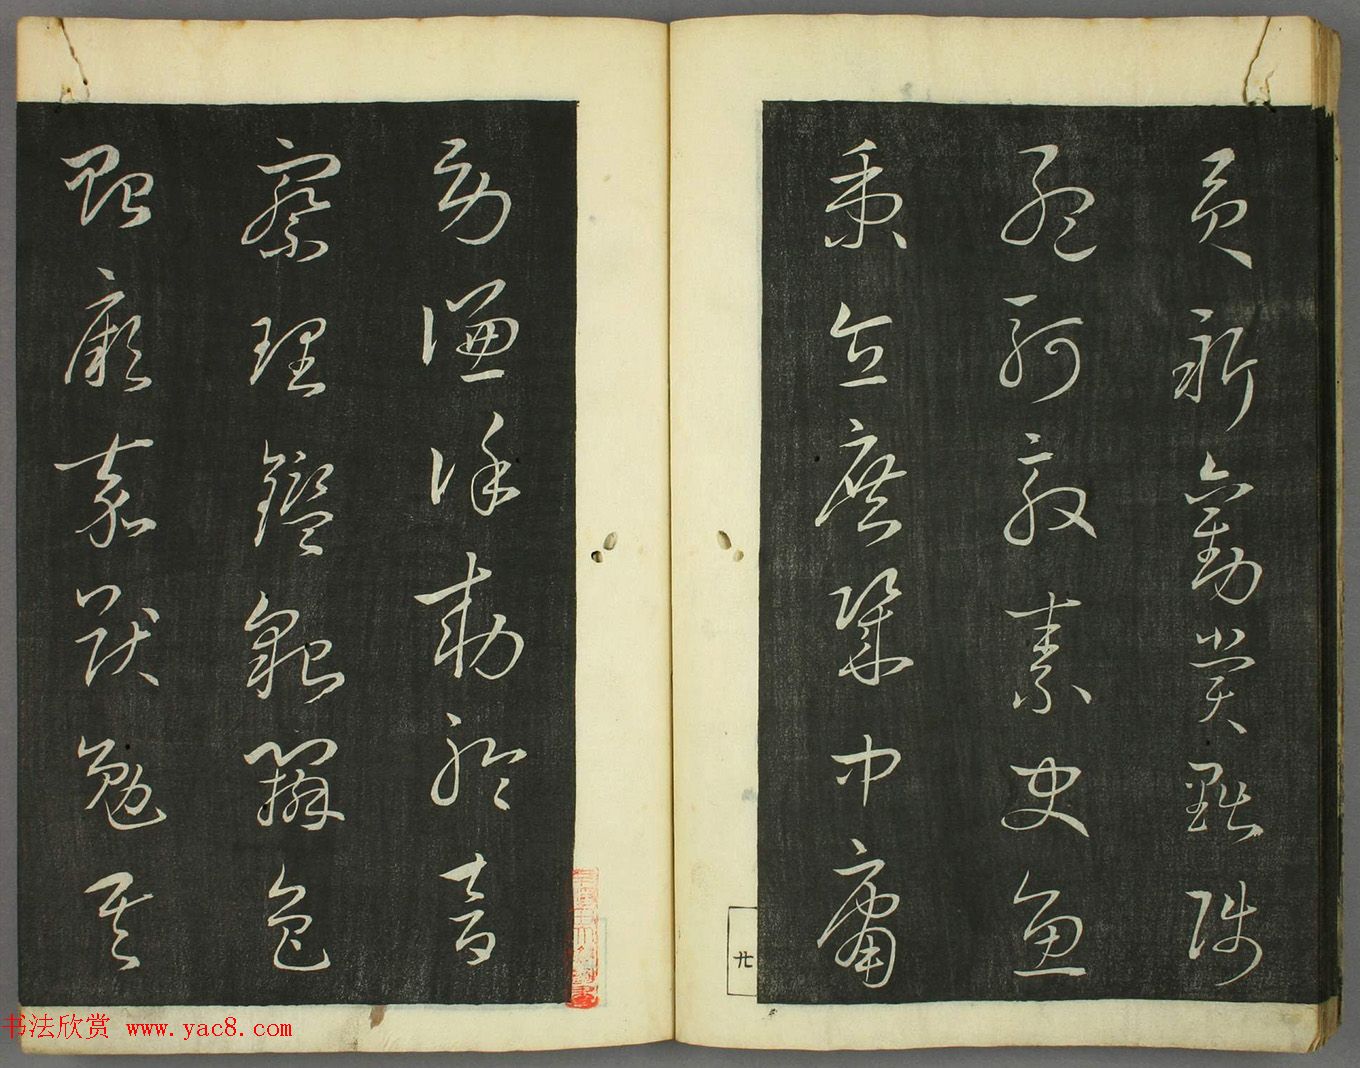 貢新勸賞黜陟
孟軻敦素史魚
秉直庶幾中庸
勞謙謹勅聆音
察理鑑貌辨色
貽厥嘉猷勉其
廿
书法欣赏 www.yac8.com